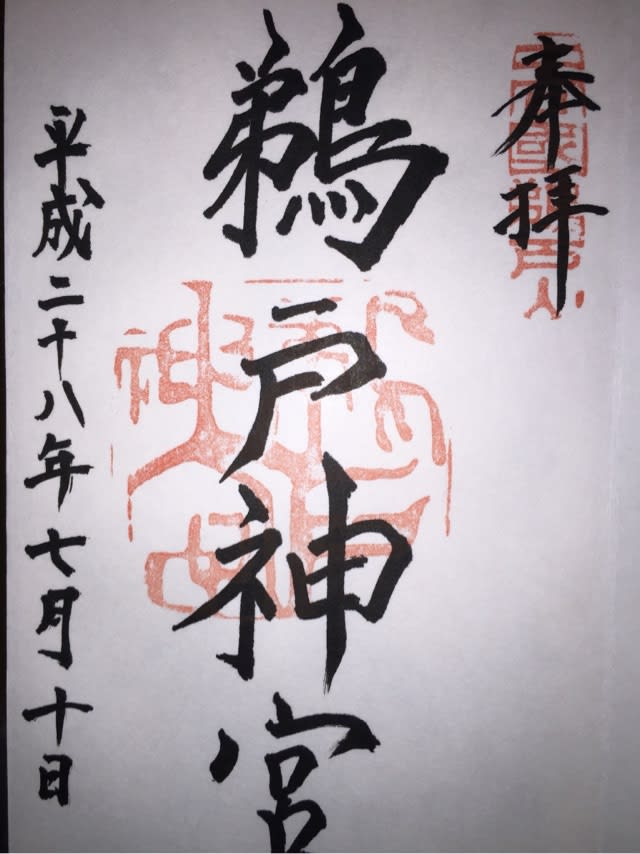 奉拝
鵜戸神宮
平成二十八年七月十日